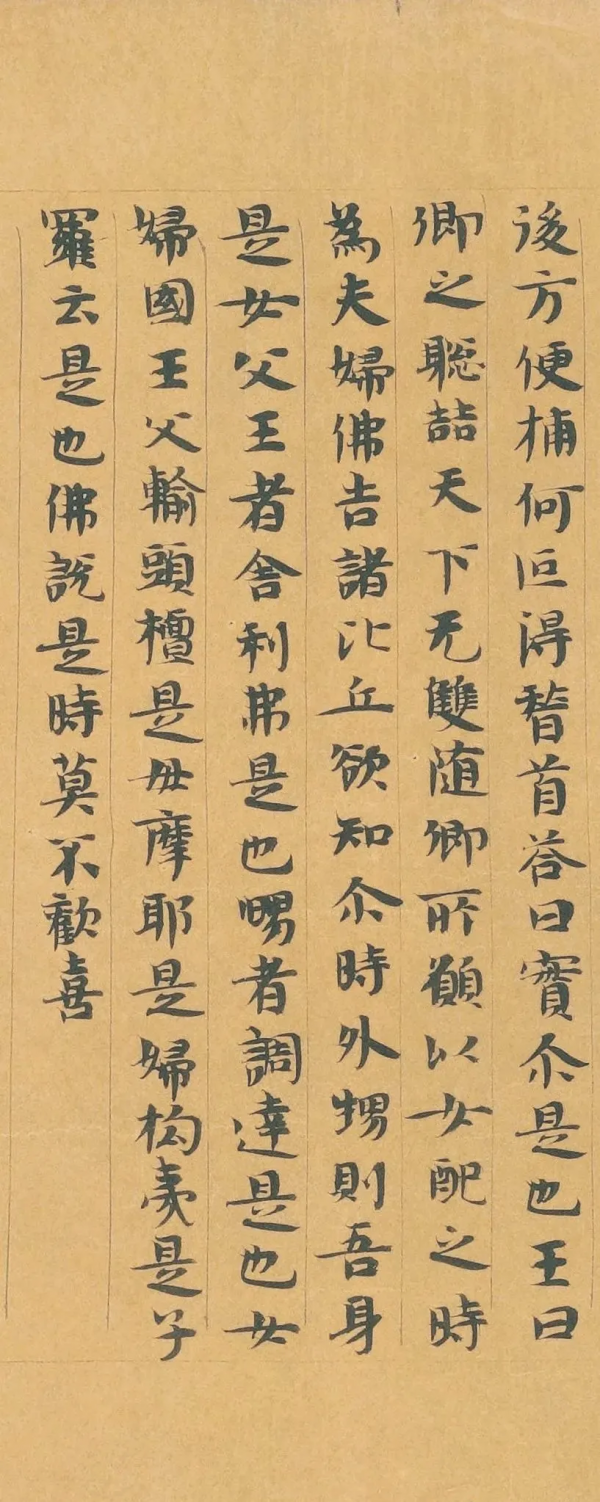 後方便捕何叵得稽首答曰實尒是也王曰
卿之聡喆天下无雙随卿所願以女配之時
為夫婦佛告諸比丘欲知尒時外甥則吾身
是女父王者舍利弗是也甥者調達是也女
婦國王父輸頭檀是母摩耶是婦拘夷是子
羅云是也佛說是時莫不歡喜